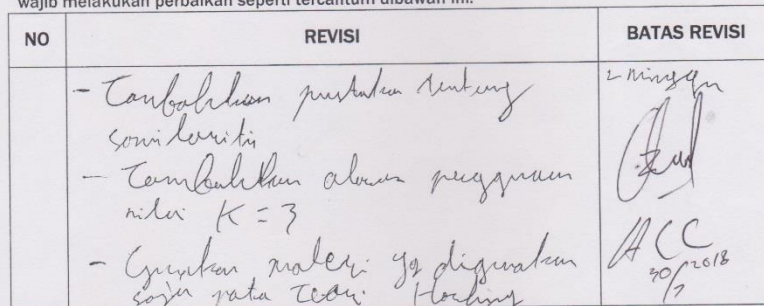 wajib melakukan perbaikan seperti tercantum dibawah ini.
NO REVISI BATAS REVISI
- Tambahkan pustaka tentang
2 minggu
- Tambahkan alasan penggunaan
nilai K = 3
- Gunakan materi yg digunakan
saja pada teori
ACC
30/7 2018